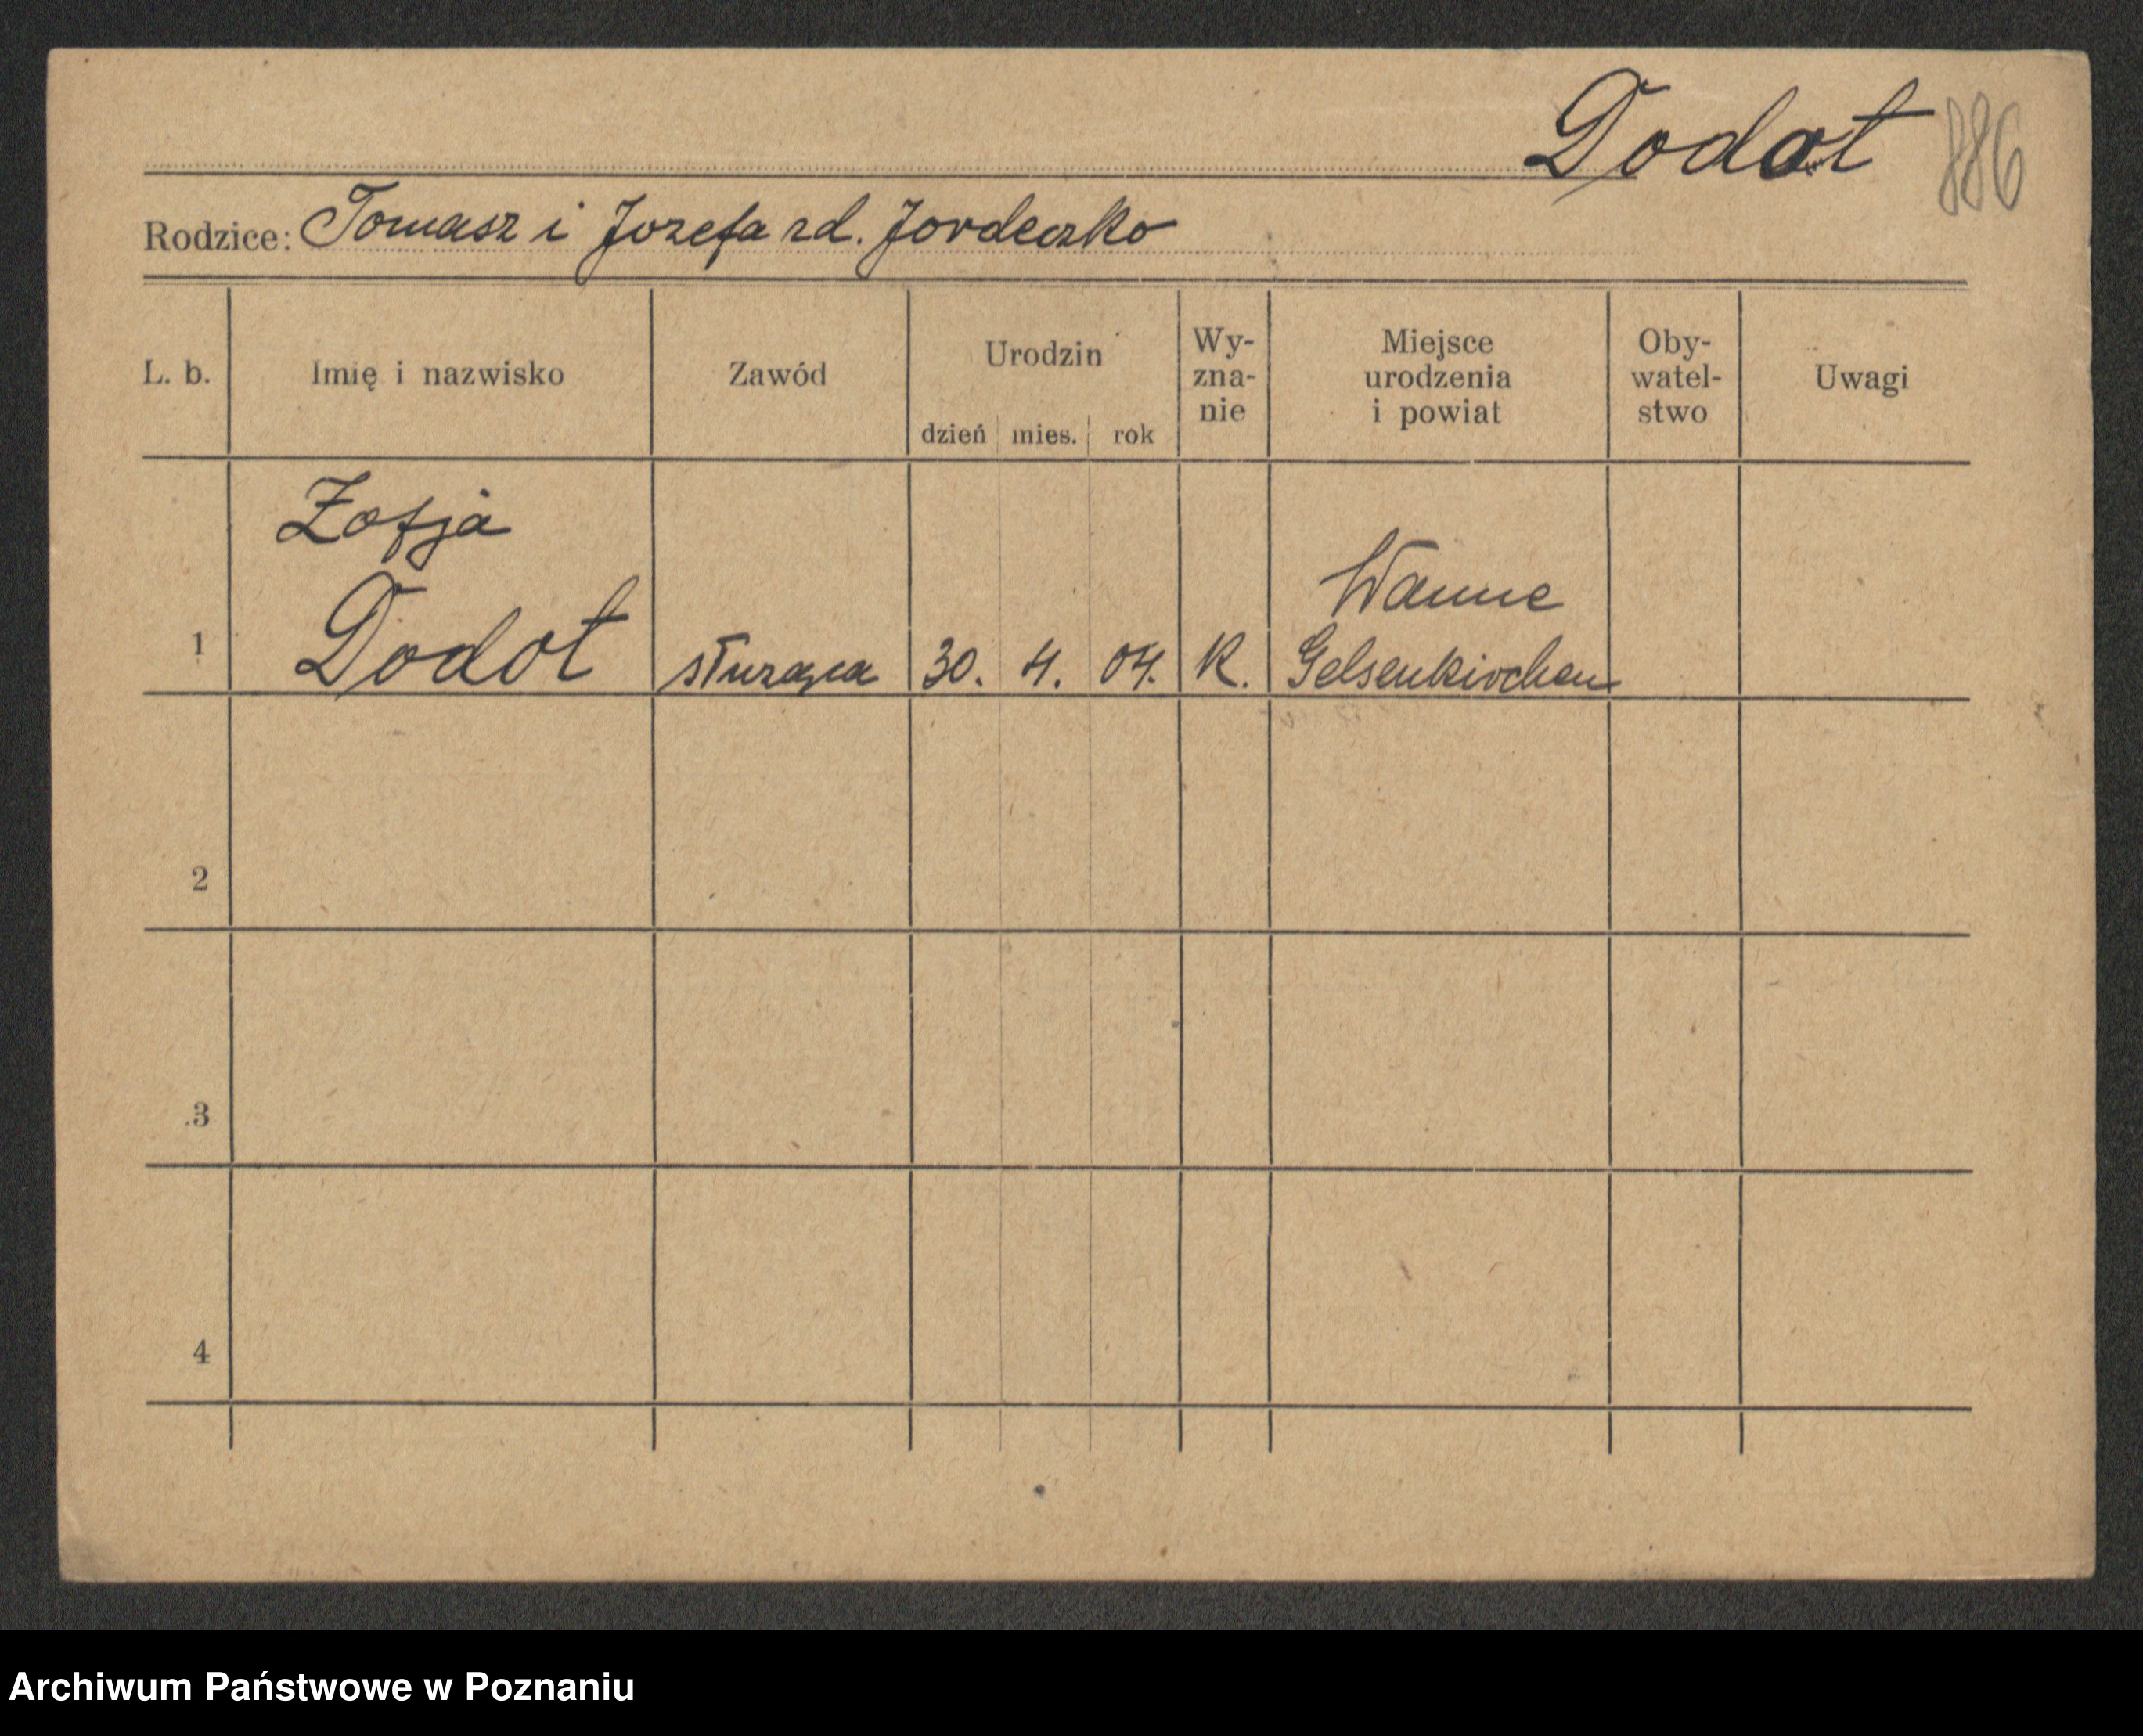 Dodot 886
Rodzice: Tomasz i Jozefa zd. Jordeczko
L. b. Imię i nazwisko Zawód Urodzin dzień mies. rok Wy-zna-nie Miejsce urodzenia i powiat Oby-watel-stwo Uwagi
Zofja
Wanne
1 Dodot służąca 30. 4. 04. K. Gelsenkirchen
2
3
4
Archiwum Państwowe w Poznaniu